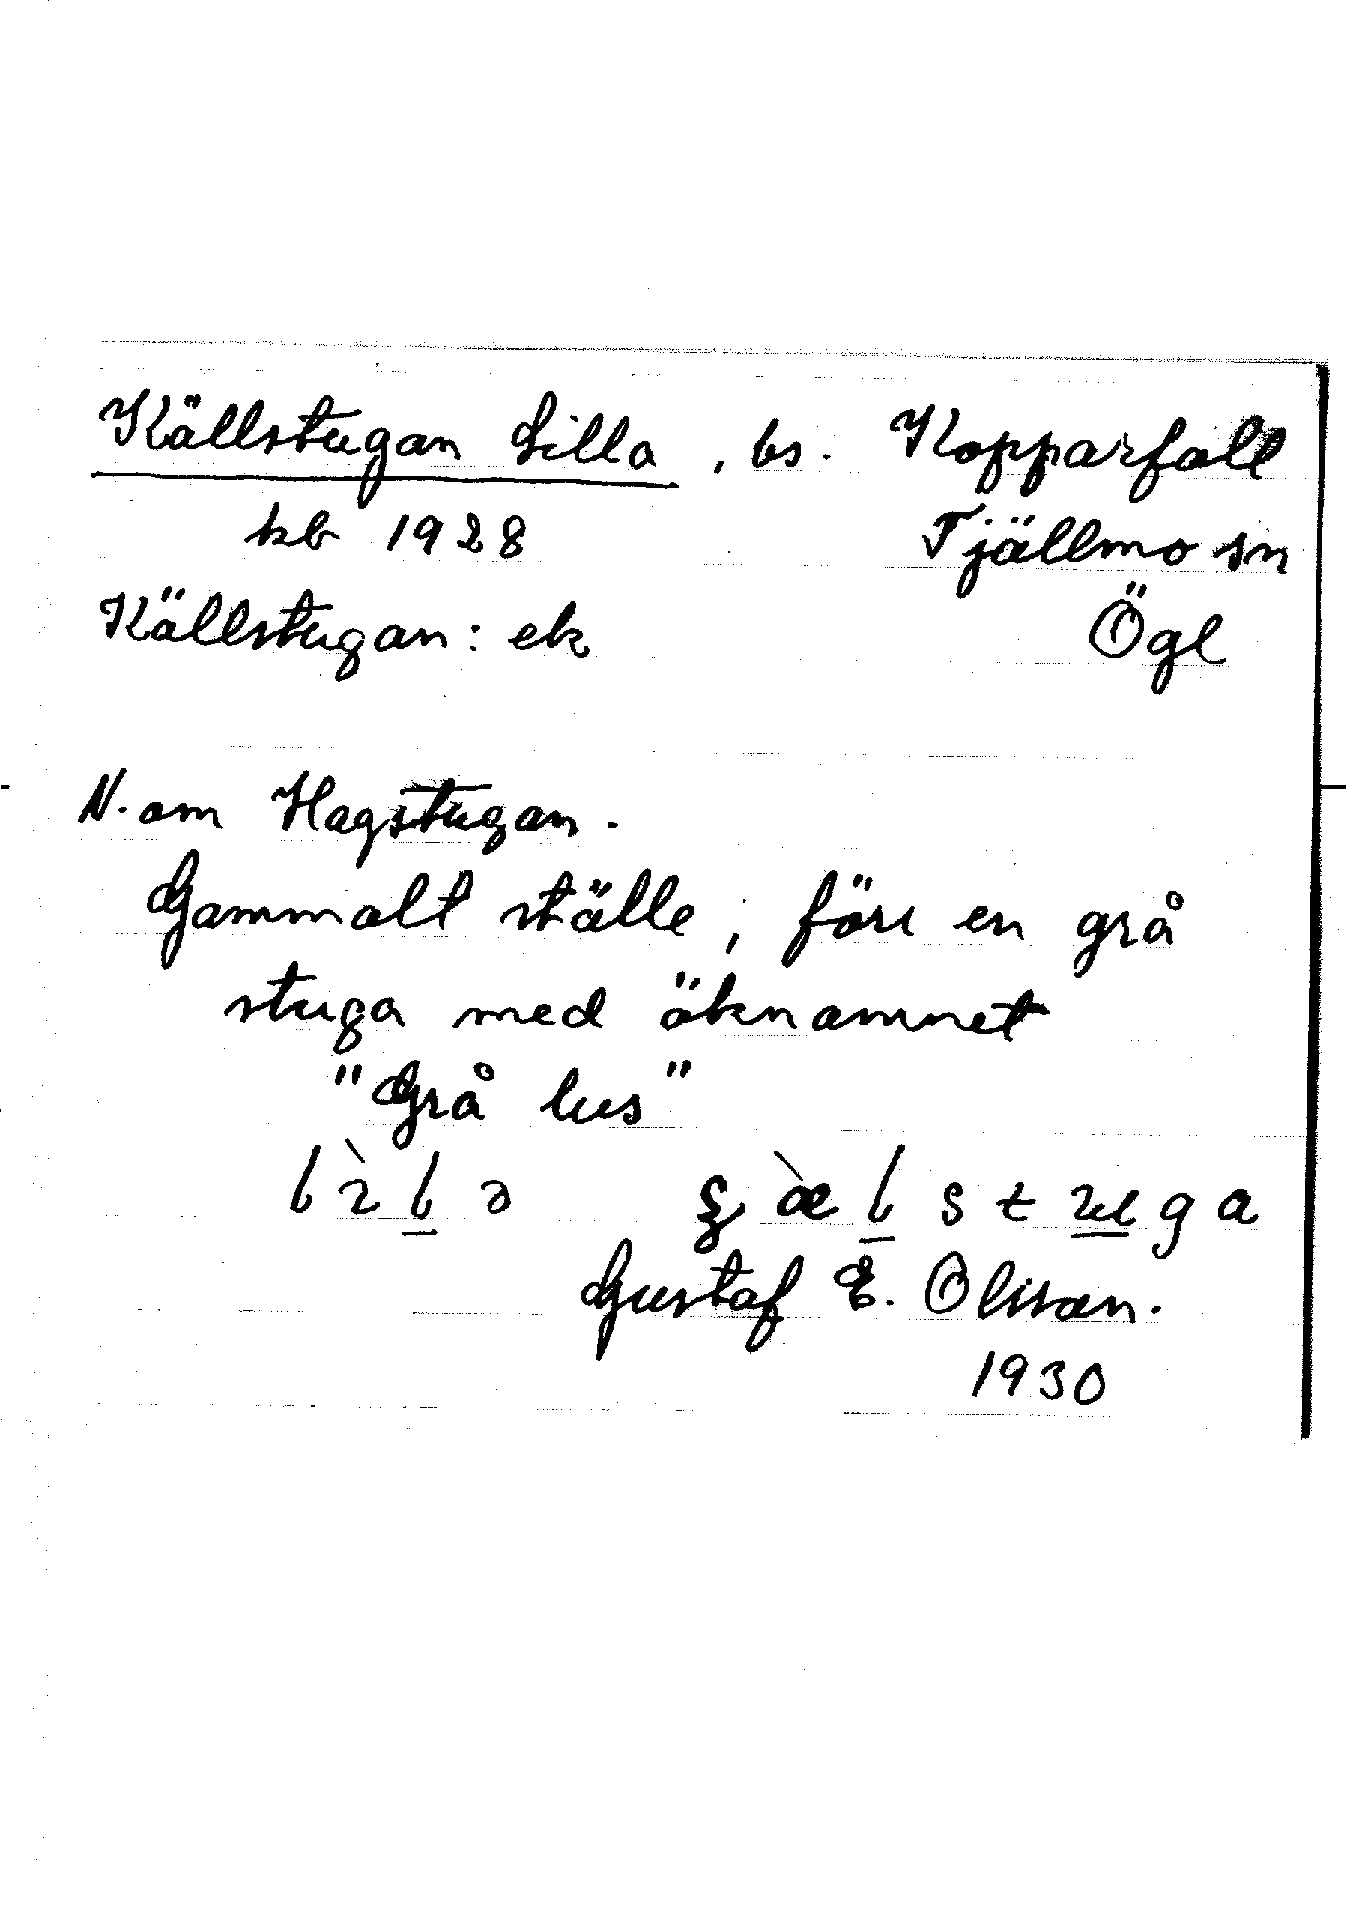 Källstugan Lilla, bs. Kopparfall
kb 1928 Tjällmo sn
Källstugan: ek Ögl
N. om Hagstugan.
Gammalt ställe, förr en grå
stuga med öknamnet
"Grå lus"
Gustaf E. Olsson.
1930